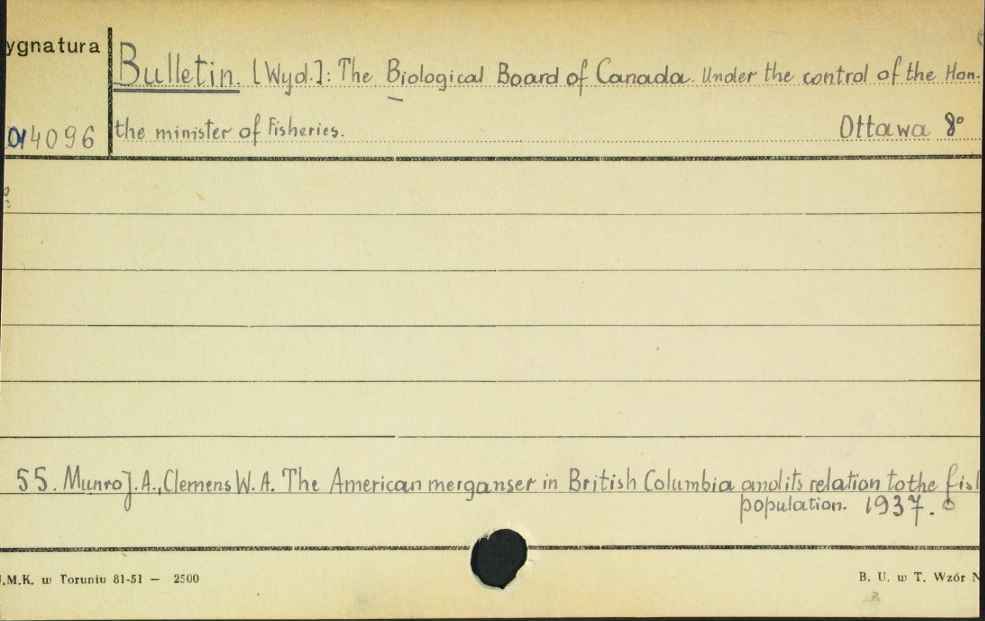 ygnatura
Bulletin. [Wyd.]: The Biological Board of Canada. Under the control of the Hon.
014096
the minister of Fisheries. Ottawa 8°
55. Munro J. A., Clemens W. A. The American merganser in British Columbia and its relation to the fish
population. 1937.
.M.K. w Toruniu 81-51 — 2500
B. U. w T. Wzór N